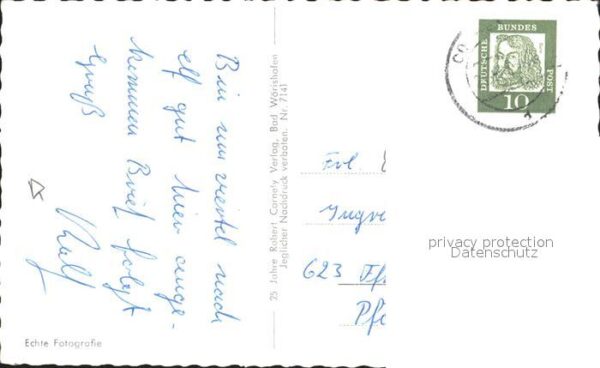 Bin um viertel nach
elf gut hier ange-
kommen Brief folgt
Gruß
Ralf
Echte Fotografie
25 Jahre Robert Cornely Verlag, Bad Wörishofen
Jeglicher Nachdruck verboten. Nr. 7141
DEUTSCHE BUNDES POST
10
Frl
623 Ffm
privacy protection
Datenschutz